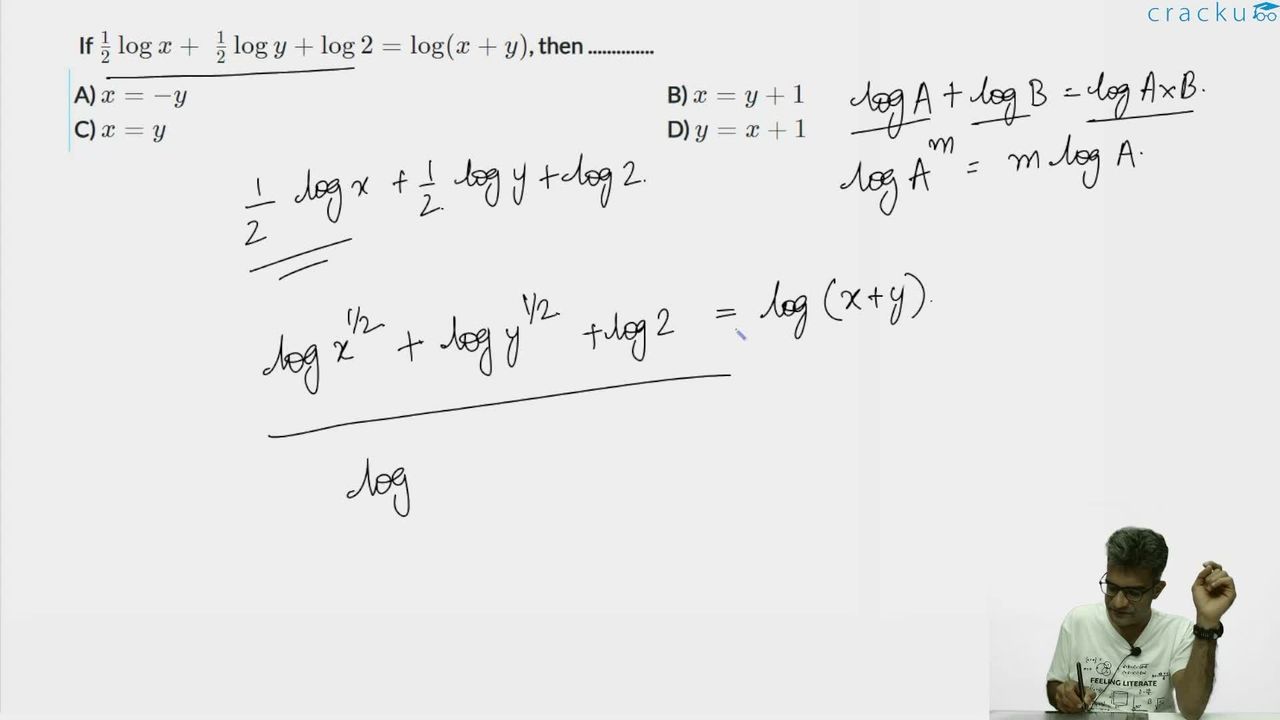 cracku
If 1/2 log x + 1/2 log y + log 2 = log(x + y), then ..............
A) x = −y
B) x = y + 1
C) x = y
D) y = x + 1
log A + log B = log A×B.
log A^m = m log A.
1/2 log x + 1/2 log y + log 2.
log x^1/2 + log y^1/2 + log 2 = log (x+y).
log
FEELING LITERATE